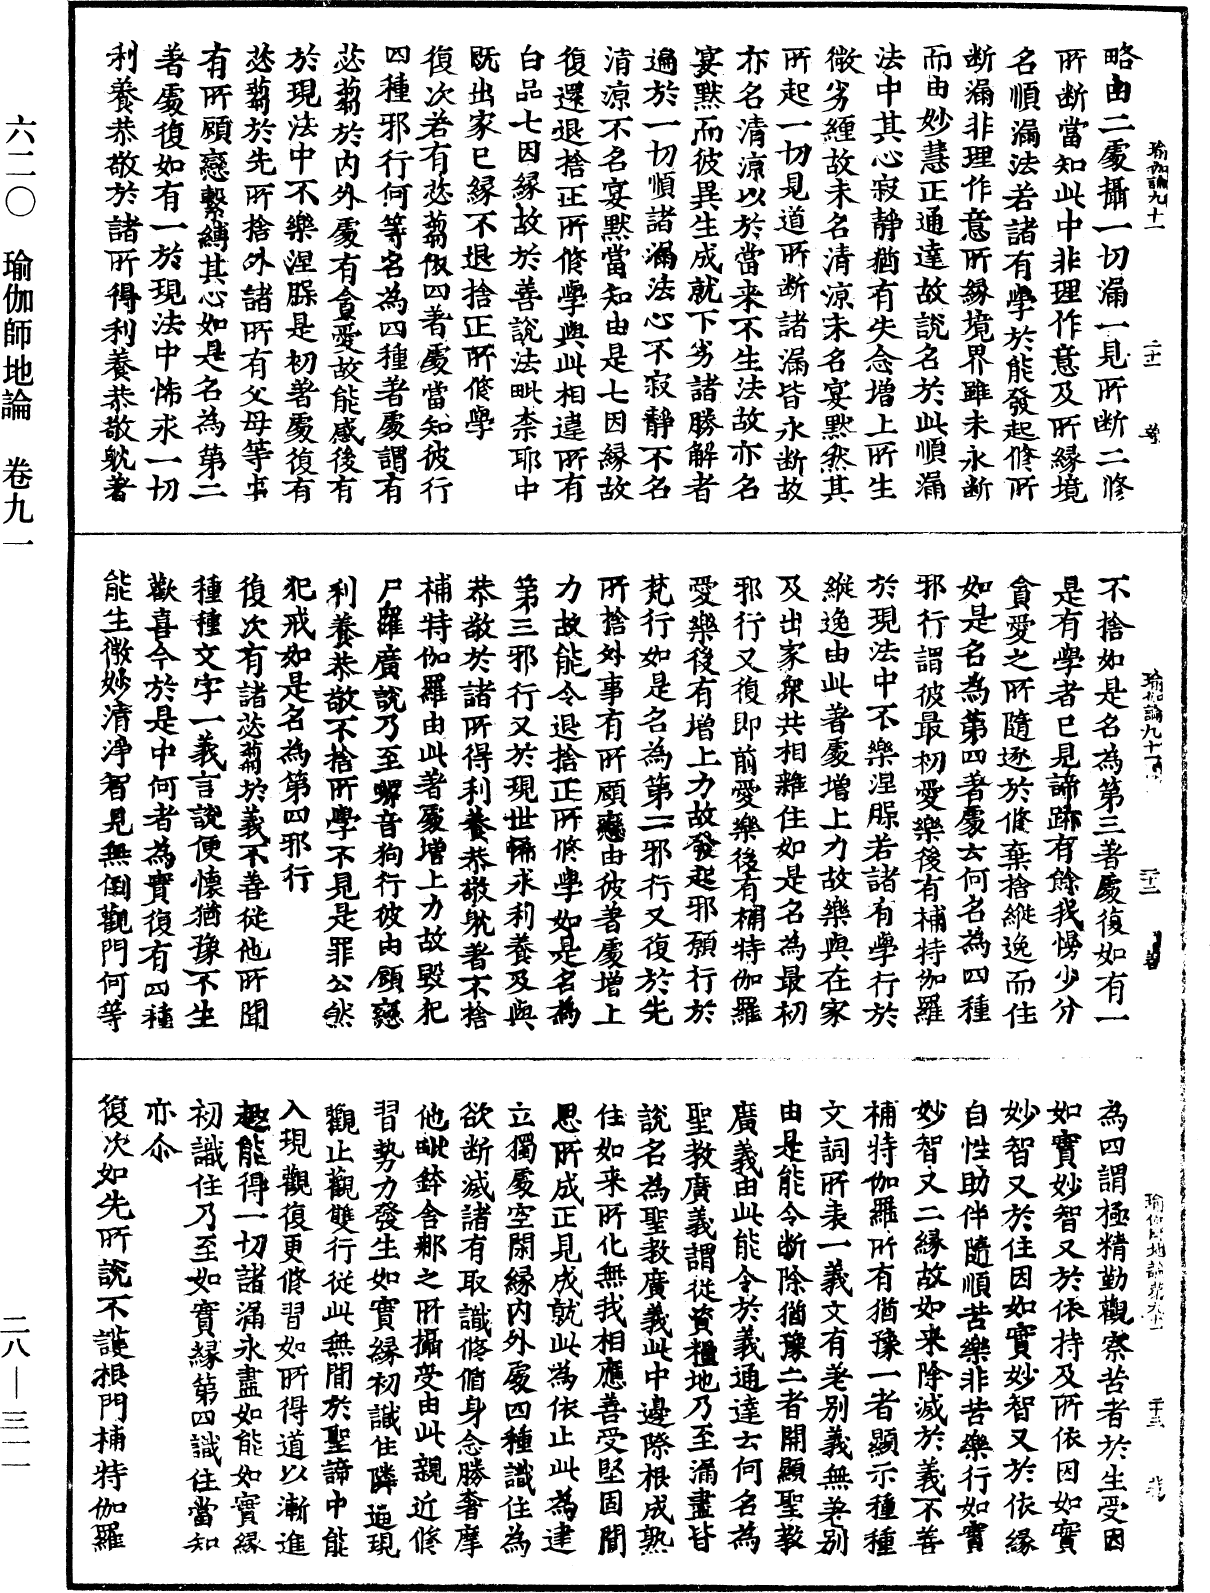 略由二處攝一切漏一見所斷二修
所斷當知此中非理作意及所緣境
名順漏法若諸有學於能發起修所
斷漏非理作意所緣境界雖未永斷
而由妙慧正通達故說名於此順漏
法中其心寂靜猶有失念增上所生
微劣纏故未名清涼未名宴默然其
所起一切見道所斷諸漏皆永斷故
亦名清涼以於當來不生法故亦名
宴默而彼異生成就下劣諸勝解者
遍於一切順諸漏法心不寂靜不名
清涼不名宴默當知由是七因緣故
復還退捨正所修學與此相違所有
白品七因緣故於善說法毗柰耶中
既出家已緣不退捨正所修學
復次若有苾芻依四著處當知彼行
四種邪行何等名為四種著處謂有
苾芻於內外處有貪愛故能感後有
於現法中不樂涅槃是初著處復有
苾芻於先所捨外諸所有父母等事
有所顧戀繫縛其心如是名為第二
著處復如有一於現法中悕求一切
利養恭敬於諸所得利養恭敬躭著
瑜伽論九十一
二十一
不捨如是名為第三著處復如有一
是有學者已見諦跡有餘我慢少分
貪愛之所隨逐於修棄捨縱逸而住
如是名為第四著處云何名為四種
邪行謂彼最初愛樂後有補特伽羅
於現法中不樂涅槃若諸有學行於
縱逸由此著處增上力故樂與在家
及出家衆共相雜住如是名為最初
邪行又復即前愛樂後有補特伽羅
愛樂後有增上力故發起邪願行於
梵行如是名為第二邪行又復於先
所捨外事有所顧戀由彼著處增上
力故能令退捨正所修學如是名為
第三邪行又於現世悕求利養及與
恭敬於諸所得利養恭敬躭著不捨
補特伽羅由此著處增上力故毀犯
尸羅廣說乃至螺音狗行彼由顧戀
利養恭敬不捨所學不見是罪公然
犯戒如是名為第四邪行
復次有諸苾芻於義不善從他所聞
種種文字一義言說便懷猶豫不生
歡喜今於是中何者為實復有四種
能生微妙清淨智見無倒觀門何等
瑜伽論九十一
二十二
為四謂極精勤觀察苦者於生受因
如實妙智又於依持及所依因如實
妙智又於住因如實妙智又於依緣
自性助伴隨順苦樂非苦樂行如實
妙智又二緣故如來除滅於義不善
補特伽羅所有猶豫一者顯示種種
文詞所表一義文有差別義無差別
由是能令斷除猶豫二者開顯聖教
廣義由此能令於義通達云何名為
聖教廣義謂從資糧地乃至漏盡皆
說名為聖教廣義此中邊際根成熟
住如來所化無我相應善受堅固聞
思所成正見成就此為依止此為建
立獨處空閑緣內外處四種識住為
欲斷滅諸有取識修循身念勝奢摩
他毗鉢舍那之所攝受由此親近修
習勢力發生如實緣初識住隣逼現
觀止觀雙行從此無間於聖諦中能
入現觀復更修習如所得道以漸進
趣能得一切諸漏永盡如能如實緣
初識住乃至如實緣第四識住當知
亦尒
復次如先所說不護根門補特伽羅
瑜伽師地論卷九十一
二十三
六二〇　瑜伽師地論　卷九一
二八—三一一